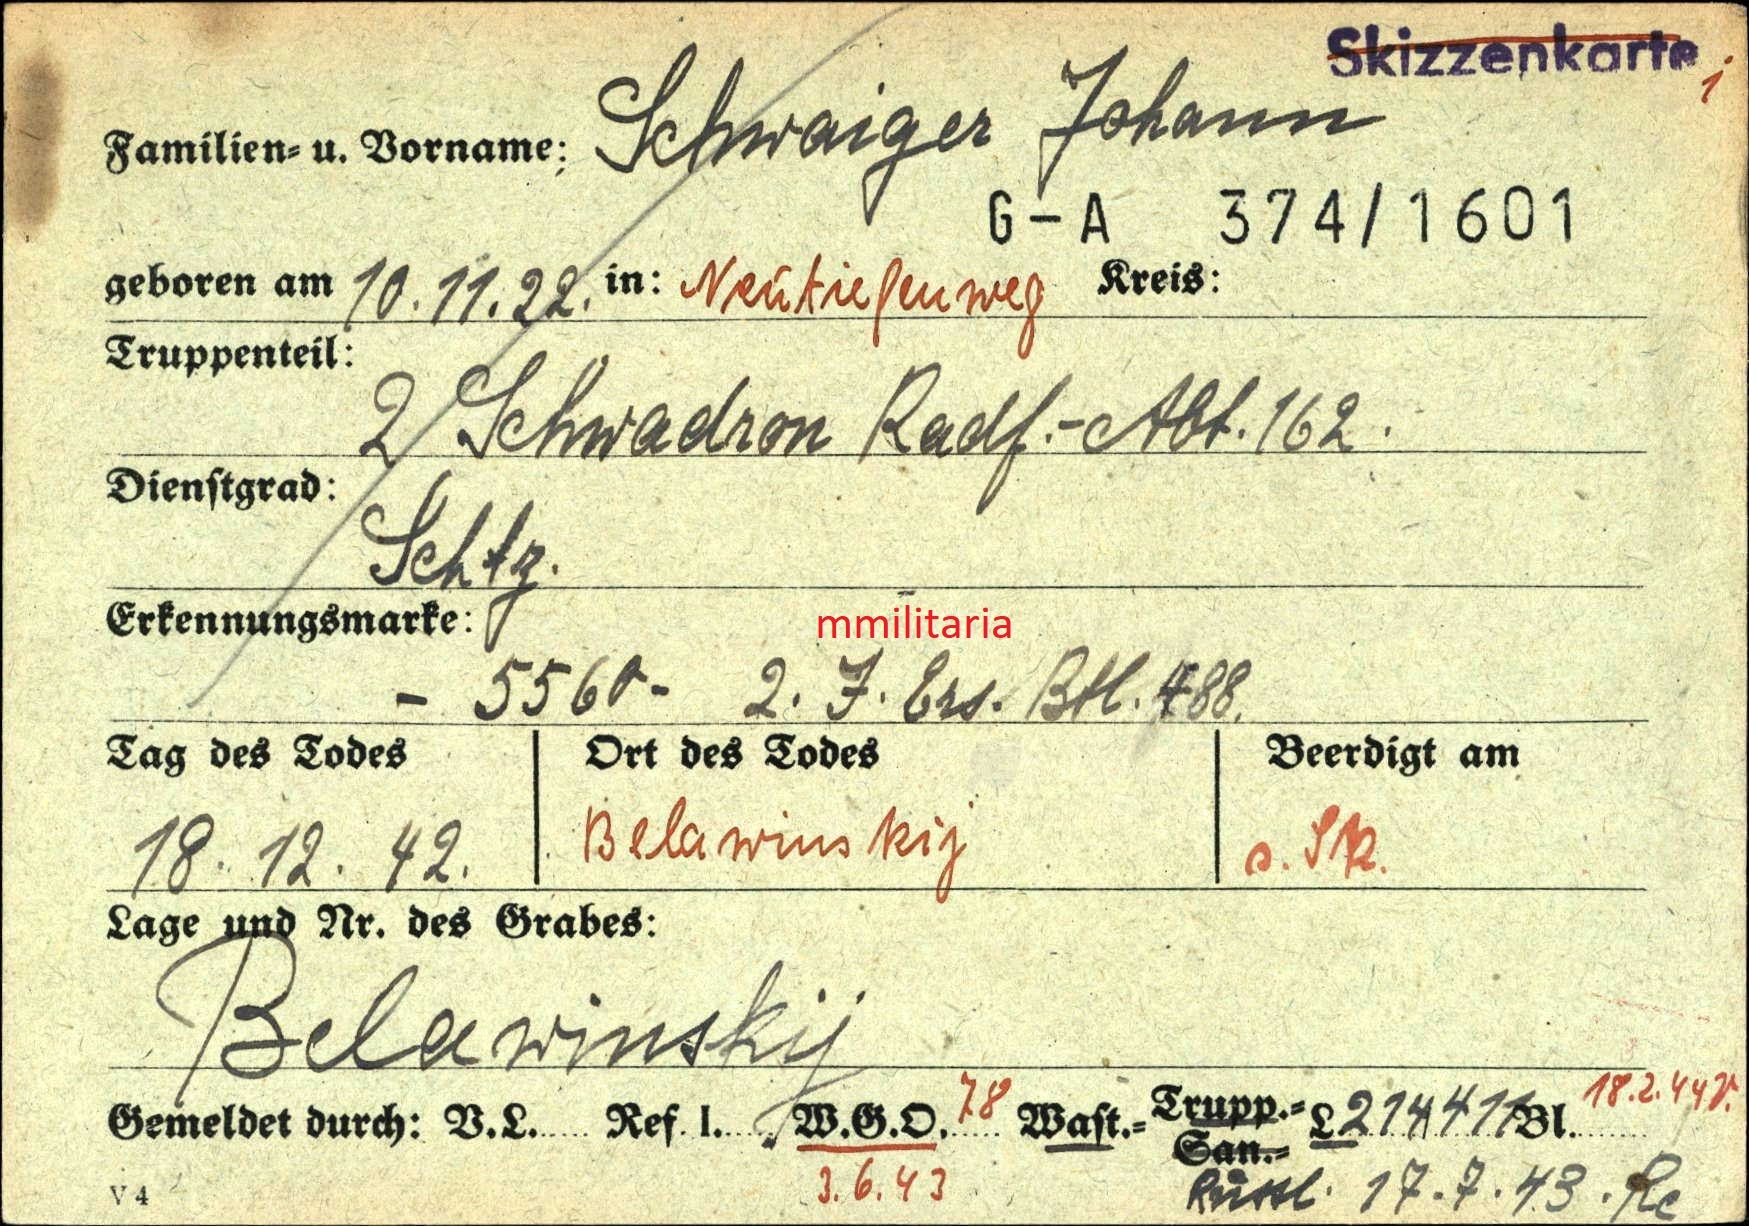 Skizzenkarte
Familien- u. Vorname: Schwaiger Johann
G-A 374/1601
geboren am 10.11.22. in: Neutiefenweg Kreis:
Truppenteil:
2 Schwadron Radf.-Abt. 162.
Dienstgrad:
Schtz.
Erkennungsmarke:
mmilitaria
- 5560- 2. J. Ers. Btl. 488.
Tag des Todes Ort des Todes Beerdigt am
18. 12. 42. Belawinskij s. Sk.
Lage und Nr. des Grabes:
Belawinskij
Gemeldet durch: V.L..... Ref. I..... W.G.O. 78 Wast.- Trupp.- L 214411 Bl. 18.2.44
San.-
V 4 3.6.43 Russl. 17.7.43.